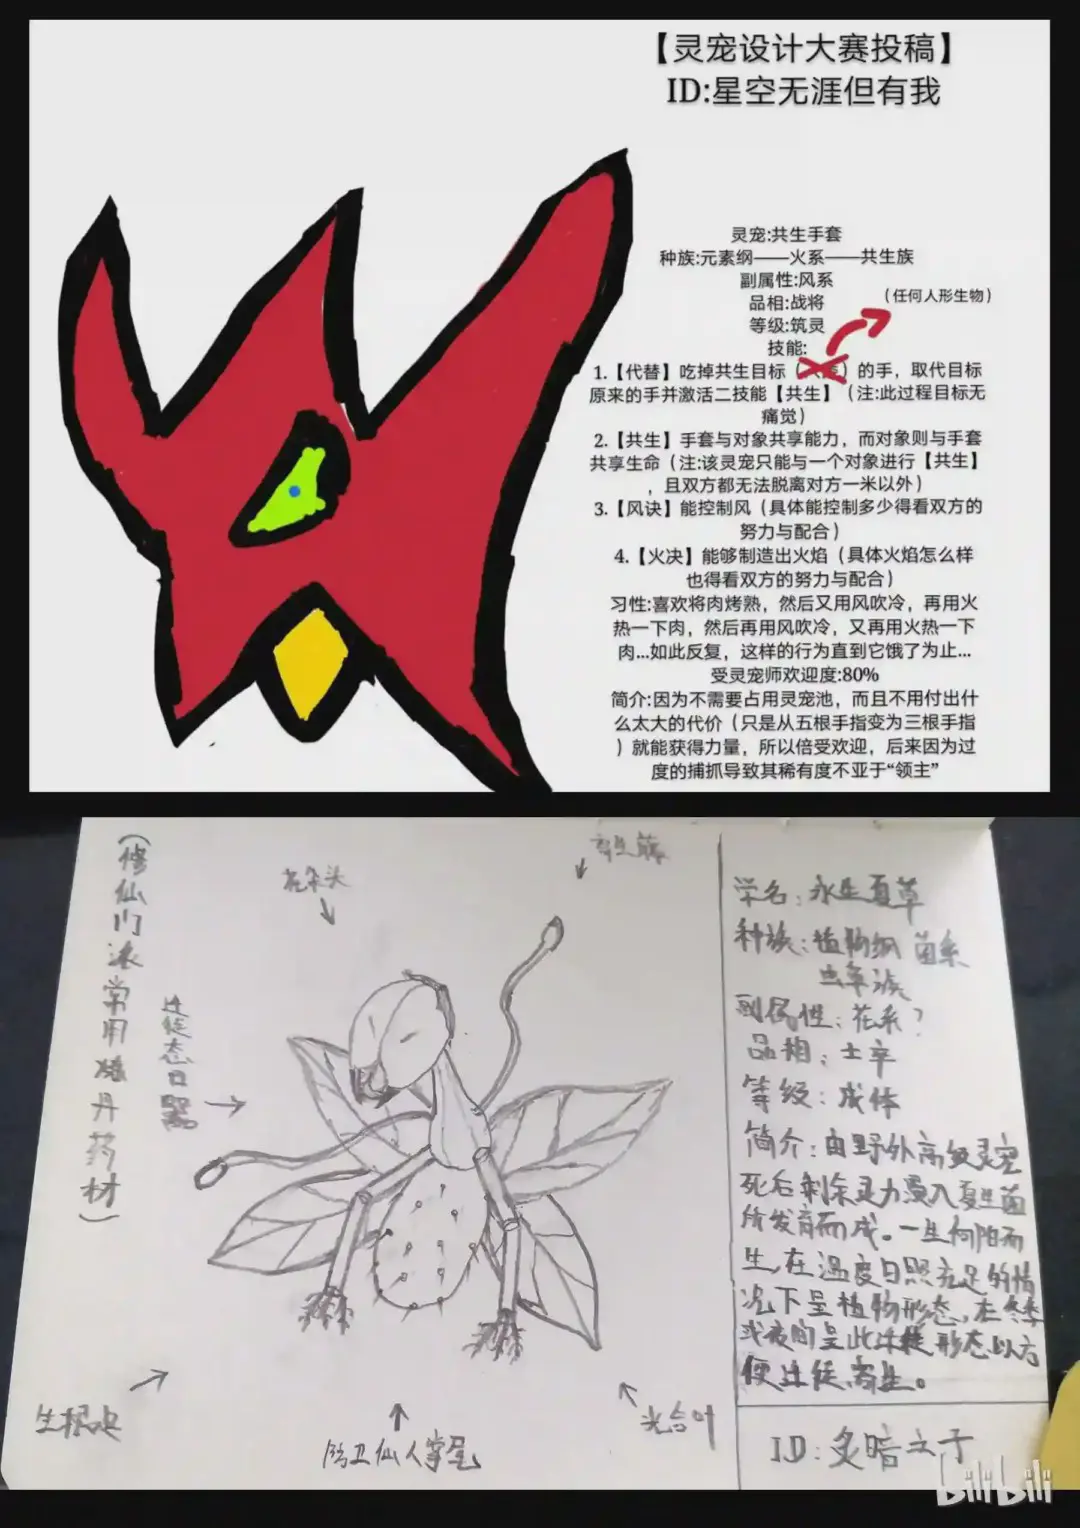 【灵宠设计大赛投稿】
ID:星空无涯但有我
灵宠:共生手套
种族:元素纲——火系——共生族
副属性:风系
品相:战将
(任何人形生物)
等级:筑灵
技能:
1.【代替】吃掉共生目标( )的手，取代目标
原来的手并激活二技能【共生】(注:此过程目标无
痛觉)
2.【共生】手套与对象共享能力，而对象则与手套
共享生命(注:该灵宠只能与一个对象进行【共生】
，且双方都无法脱离对方一米以外)
3.【风诀】能控制风(具体能控制多少得看双方的
努力与配合)
4.【火决】能够制造出火焰(具体火焰怎么样
也得看双方的努力与配合)
习性:喜欢将肉烤熟，然后又用风吹冷，再用火
热一下肉，然后再用风吹冷，又再用火热一下
肉...如此反复，这样的行为直到它饿了为止...
受灵宠师欢迎度:80%
简介:因为不需要占用灵宠池，而且不用付出什
么太大的代价(只是从五根手指变为三根手指
)就能获得力量，所以倍受欢迎，后来因为过
度的捕抓导致其稀有度不亚于“领主”
(修仙门派常用炼丹药材)
花朵头
寄生藤
迁徙态口器
生根决
防卫仙人掌尾
光合叶
学名:永生夏草
种族:植物纲 菌系
虫草族
副属性:花系?
品相:士卒
等级:成体
简介:由野外高级灵宠
死后剩余灵力浸入夏生菌
所发育而成。一生向阳而
生,在温度日照充足的情
况下呈植物形态,在冬季
或夜间呈此迁徙形态以方
便迁徙寄生。
ID:炙暗之子
bilibili